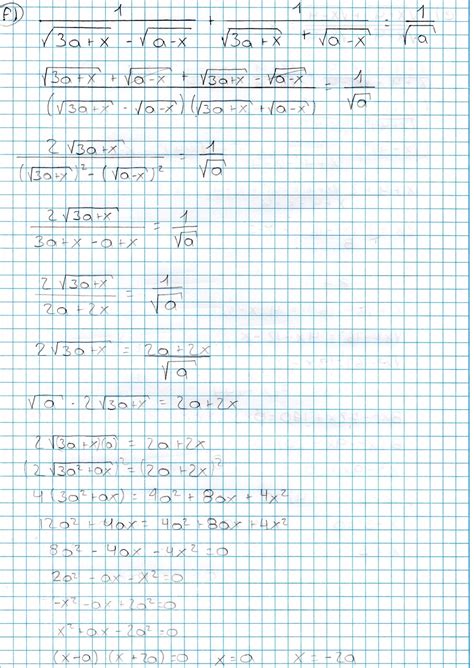 A) 1/(√(3a+x) - √(a-x)) + 1/(√(3a+x) + √(a-x)) = 1/√a
(√(3a+x) + √(a-x) + √(3a+x) - √(a-x))/((√(3a+x) - √(a-x))(√(3a+x) + √(a-x))) = 1/√a
2√(3a+x)/((√(3a+x))² - (√(a-x))²) = 1/√a
2√(3a+x)/(3a+x-a+x) = 1/√a
2√(3a+x)/(2a+2x) = 1/√a
2√(3a+x) = (2a+2x)/√a
√a · 2√(3a+x) = 2a+2x
2√((3a+x)(a)) = 2a+2x
(2√(3a²+ax))² = (2a+2x)²
4(3a²+ax) = 4a²+8ax+4x²
12a²+4ax = 4a²+8ax+4x²
8a² - 4ax - 4x² = 0
2a² - ax - x² = 0
-x² - ax + 2a² = 0
x² + ax - 2a² = 0
(x-a)(x+2a) = 0 x = a x = -2a